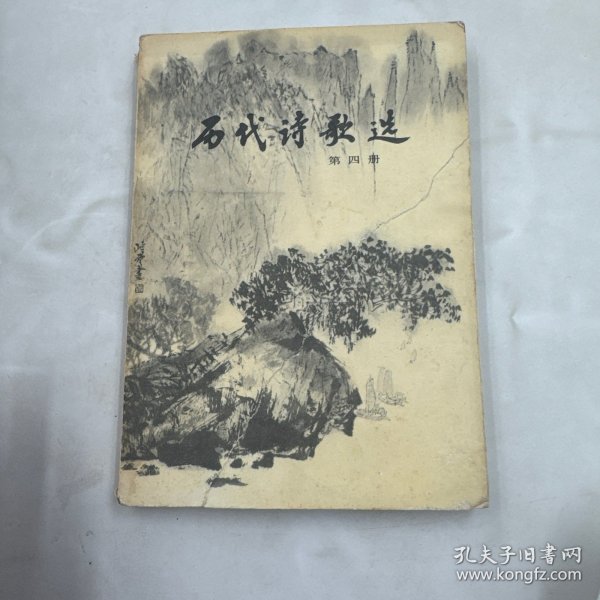 历代诗歌选
第四册
孔夫子旧书网
www.kongfz.com